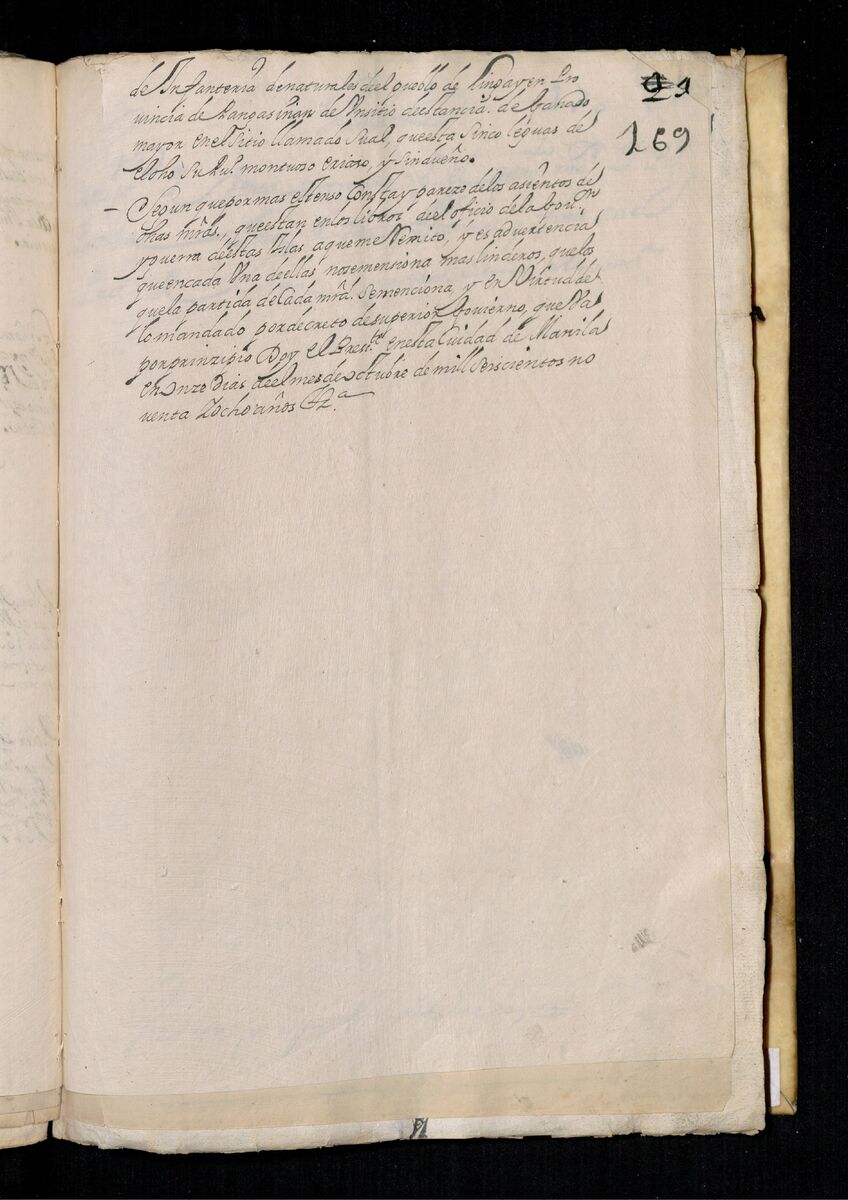 91
169
de Infanteria de naturales del pueblo de lingayen Pro
vincia de Pangasinan de Un sitio de estancia. de ganado
mayor en el sitio llamado Sual, que esta sinco leguas de
el dho montuoso eriaso, y sin dueño.
— Segun que por mas estenso Consta y pareze de los asientos de
dhas mrds., que estan en los libros del oficio de la Gouon
y Guerra de estas Yslas a que me Remito, y es advertencia
que en cada Una de ellas no se mensiona mas linderos, que los
que la partida de Cada mrd. se menciona, y en Virtud de
lo mandado por decreto de superior Govierno, que Va
por prinzipio Doy el Presste en esta Ciudad de Manila
en Onze Dias de el mes de Octubre de mill seiscientos no
venta Y ocho años